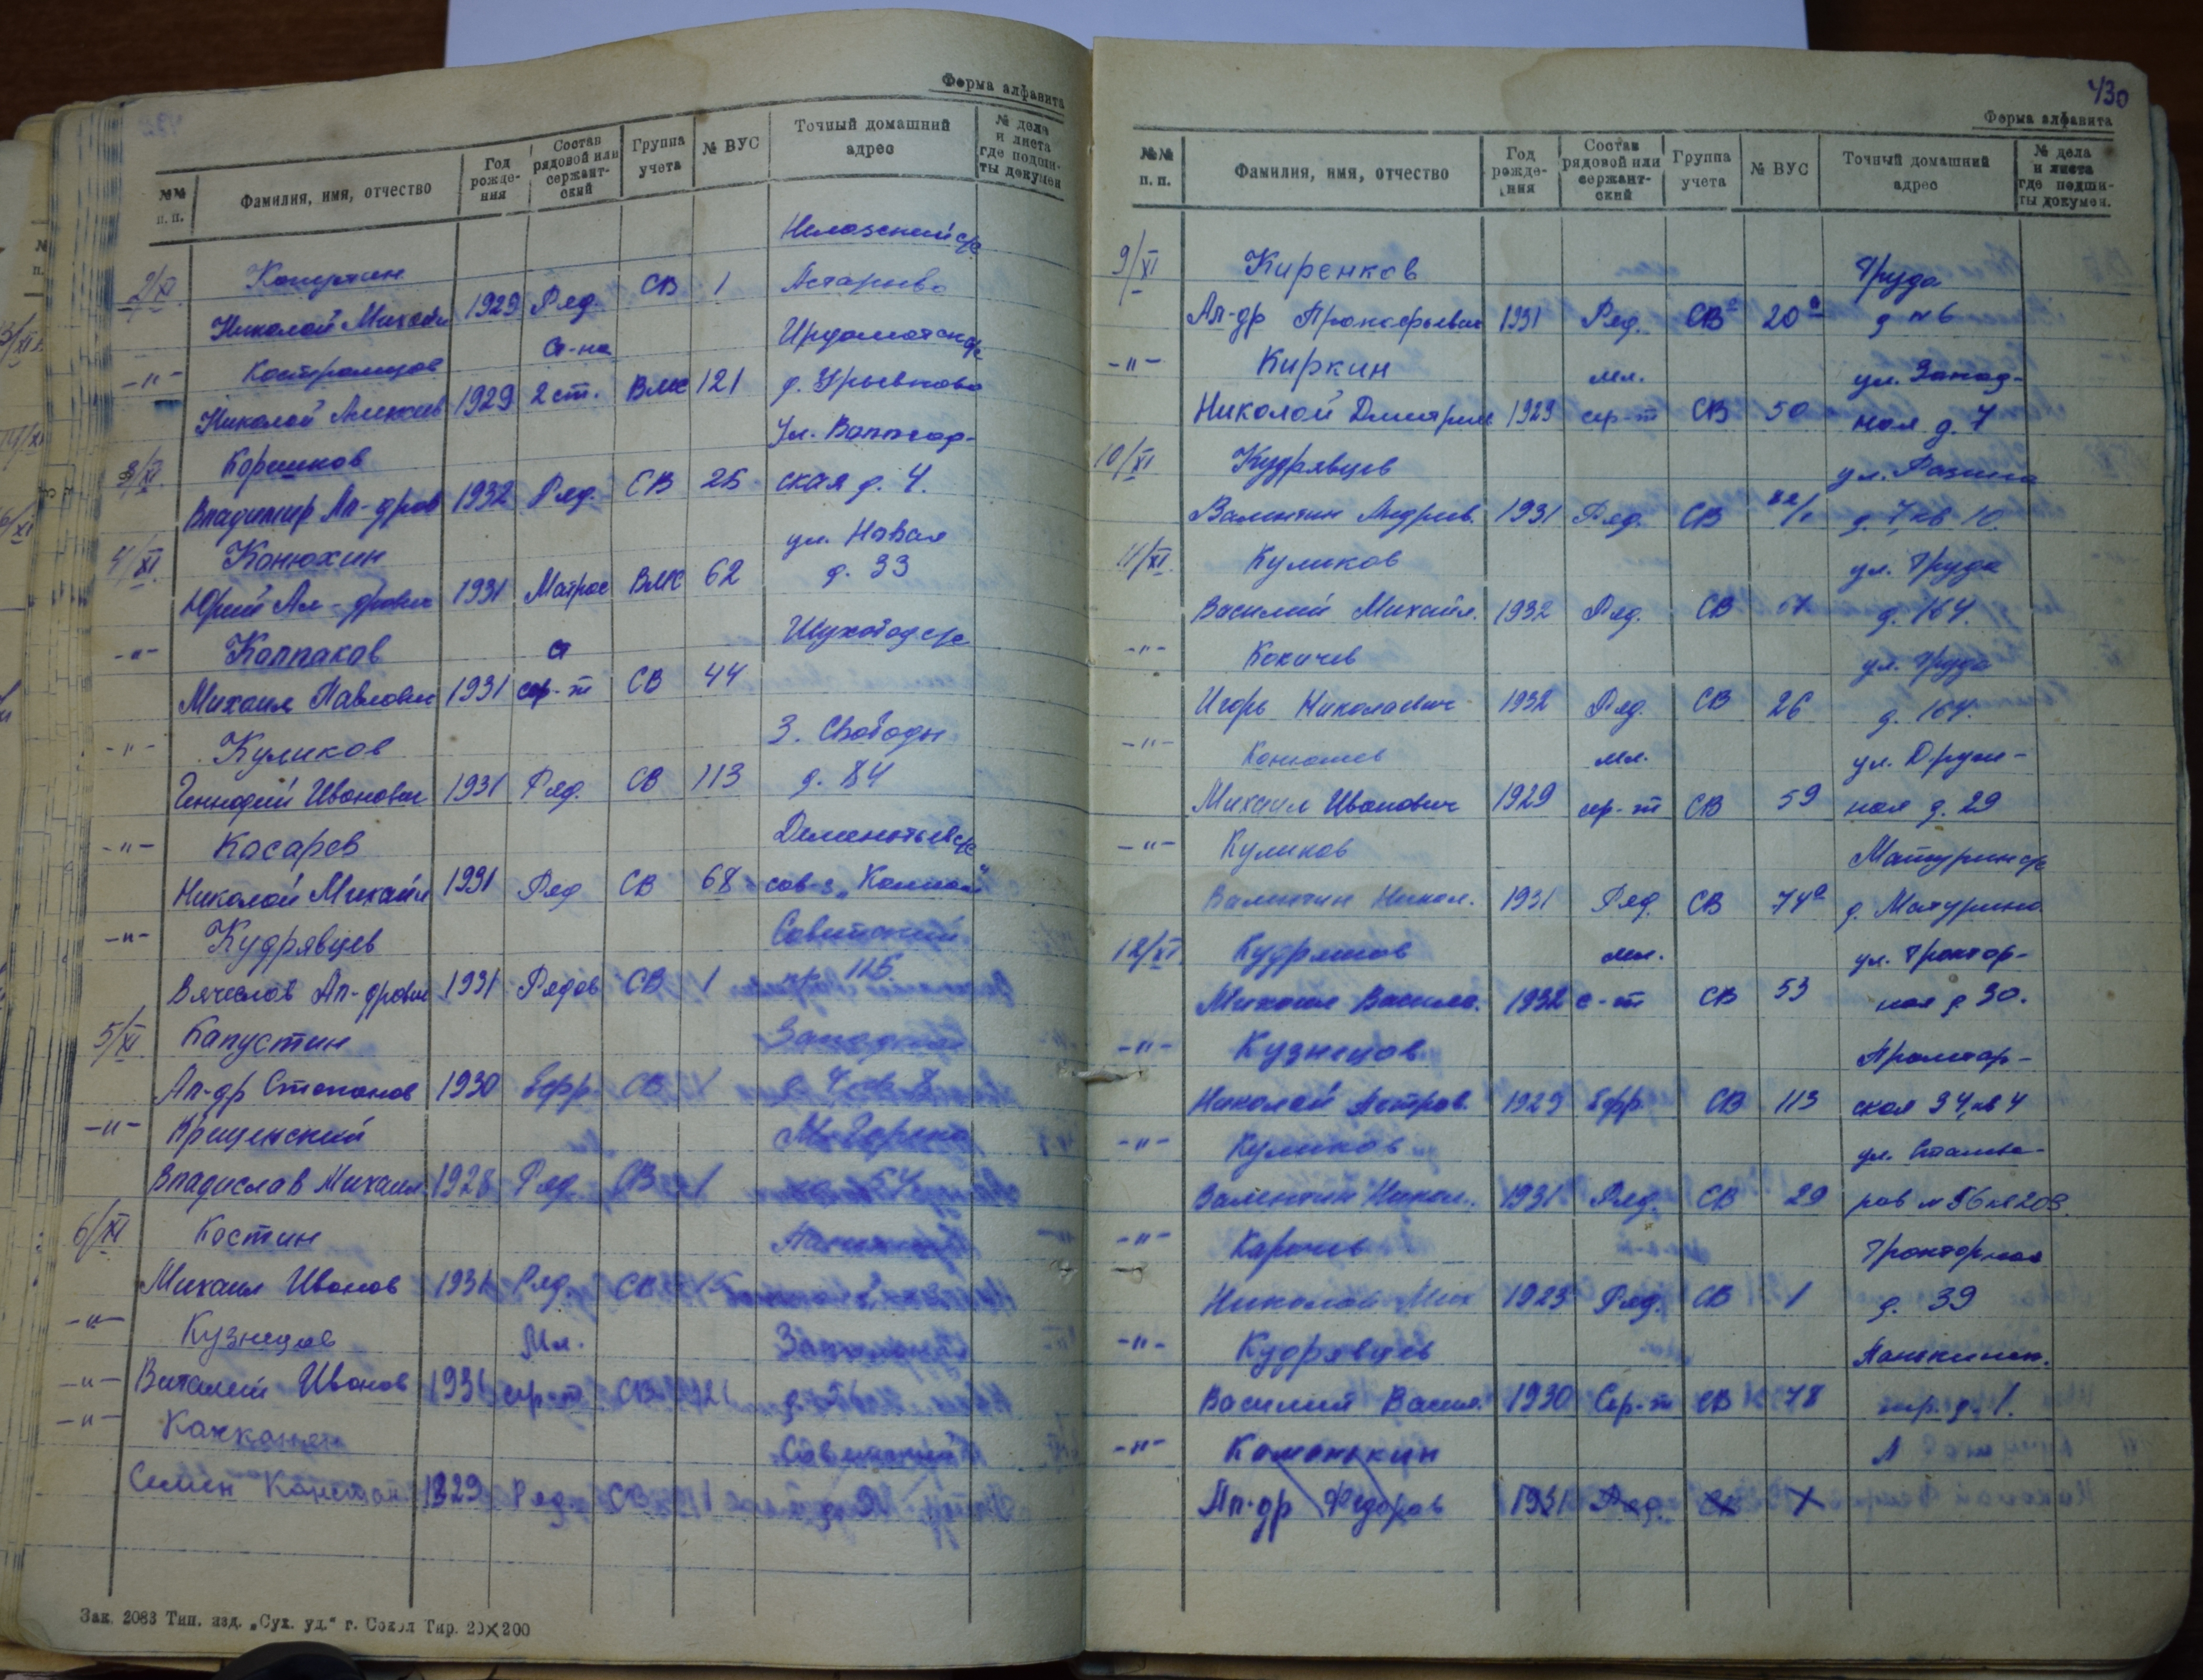 Форма алфавита
№№ п. п. Фамилия, имя, отчество Год рожде- ния Состав рядовой или сержант- ский Группа учета № ВУС Точный домашний адрес № дела и листа где подши- ты докумен
Нелазский с/с
2/XI Капустин
Николай Михайл 1929 Ряд. СВ 1
ст-на Ирдоматск с/с
-"- Костромцов
Николай Алексеев 1929 2 ст. ВМС 121 д.
ул.
3/XI Коршков
Владимир Ал-дров 1932 Ряд. СВ 25 ская д. 4.
4/XI Конюхин ул. Новая
Юрий Ал-дрович 1931 Матрос ВМС 62 д. 33
-"- Колпаков ст Шухободс с/с
Михаил Павлович 1931 сер-т СВ 44
-"- Куликов З. Свободы
Геннадий Иванович 1931 Ряд. СВ 113 д. 84
-"- Косарев с/с
Николай Михайл 1931 Ряд СВ 68 сов-з
-"- Кудрявцев Советский
Вячеслав Ал-дрович 1931 Рядов СВ 1 пр. 115
5/XI Капустин
Ал-др Степанов 1930 Ефр. СВ 1
-"- Крещенский М. Горького
Владислав Михаил 1928 Ряд. СВ 1 54
6/XI Костин
Михаил Иванов 1931 Ряд. СВ
-"- Кузнецов Мл.
-"- Виталий Иванов 1931 сер-т СВ 121 д. 56
-"- Советский
Семен Констан 1929 Ряд. СВ 1
Зак. 2083 Тип. изд. „Сух. уд.“ г. Сокол Тир. 20×200
430
Форма алфавита
№№ п. п. Фамилия, имя, отчество Год рожде- ния Состав рядовой или сержант- ский Группа учета № ВУС Точный домашний адрес № дела и листа где подши- ты докумен.
9/XI Киренков Труда
Ал-др Прокофьевич 1931 Ряд. СВ 20а д № 6
-"- Киркин мл. ул. Запад-
Николай Дмитрив 1929 сер-т СВ 50 ная д. 7
10/XI Кудрявцев ул. Разина
Валентин Андреев. 1931 Ряд. СВ д. 7, кв 10.
11/XI Куликов ул. Труда
Василий Михайл. 1932 Ряд. СВ 67 д. 164.
-"- Кокичев ул. Труда
Игорь Николаевич 1932 Ряд. СВ 26 д. 164.
-"- Конюшев мл. ул. Друж-
Михаил Иванович 1929 сер-т СВ 59 ная д. 29
-"- Куликов Матурин с/с
Валентин Никол. 1931 Ряд. СВ 74а д. Матурино
12/XI мл. ул. Трактор-
Михаил Василь. 1932 с-т СВ 53 ная д 30.
-"- Кузнецов Пролетар-
Николай Петров. 1929 Ефр. СВ 113 ская 34, кв 4
-"- Куликов ул. Сталева-
Валентин Никол. 1931 Ряд. СВ 29 ров № 56 кв 203.
-"- Карачев Тракторная
Николай Мих 1929 Ряд. СВ 1 д. 39
-"- Кудрявцев
Василий Васил. 1930 Сер-т СВ 78 д. 1.
-"- Каманькин
Ал-др Федоров 1931 Ряд. СВ 1